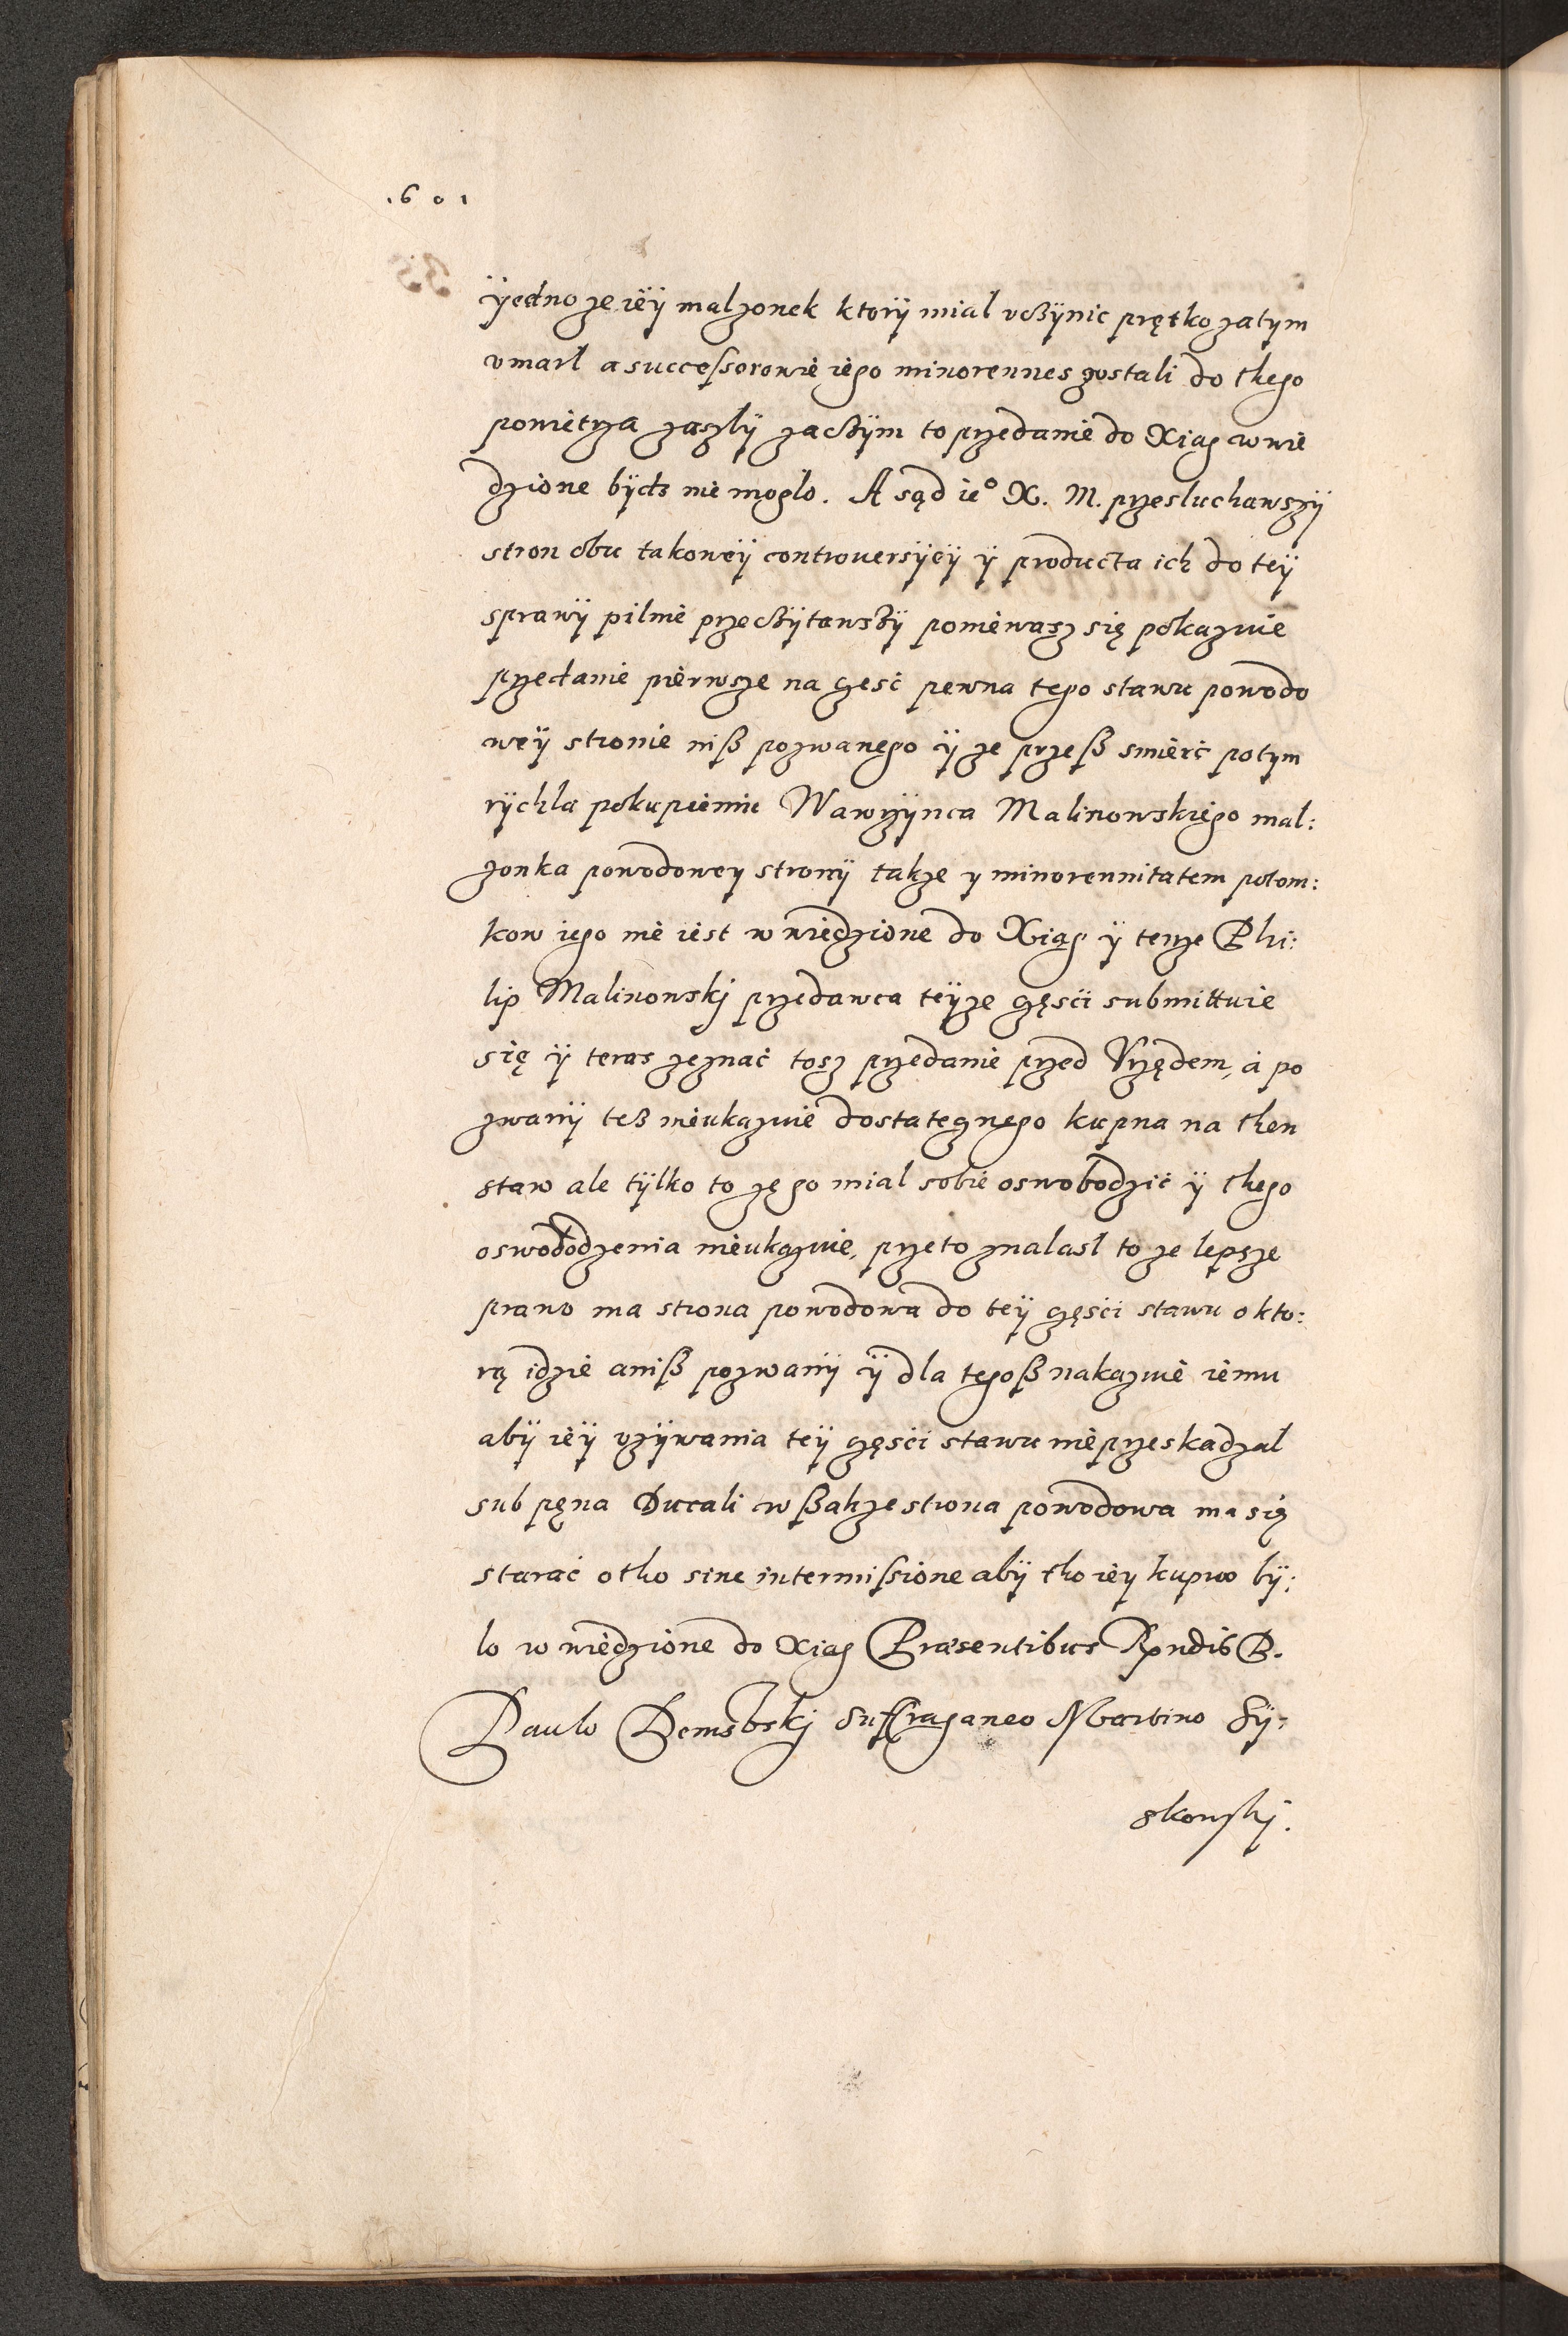 .601
ÿedno ze ieÿ malzonek ktorÿ mial vcßÿnic prętko zatym
vmarl a successorowie iego minorennes zostali do thego
powietrza zaszlÿ zacßÿm to przedanie do Xiąg wwie
dzione bÿdz nie moglo. A sąd ie° X. M. przesluchawszÿ
stron obu takoweÿ controuersÿeÿ ÿ producta ich do teÿ
sprawÿ pilnie przecßÿtawßÿ poniewasz się pokazuie
przedanie pierwsze na czesć pewna tego stawu powodo
weÿ stronie niß pozwanego ÿ ze przeß smierć potym
rÿchla pokupieniu Wawrzÿnca Malinowskiego mal:
zonka powodowey stronÿ takze y minorennitatem potom:
kow iego nie iest wwiedzione do Xiąg ÿ tenze Phi:
lip Malinowskj przedawca teÿze częsci submittuie
się ÿ teras zeznać tosz przedanie przed Vrzędem, á po
zwanÿ teß nieukazuie dostatecznego kupna na then
staw ale tÿlko to zę go mial sobie oswobodzić ÿ thego
oswobodzenia nieukazuie, przeto znalasl to ze lepsze
prawo ma strona powodowa do teÿ częsći stawu o kto:
rą idzie aniß pozwanÿ ÿ dla tegoß nakazuie iemu
abÿ ieÿ vzÿwania teÿ częsći stawu nieprzeskadzal
sub pęna Ducali wßakze strona powodowa ma się
starać otho sine intermissione abÿ tho iey kupno bÿ:
lo wwiedzione do Xiag Præsentibus Rpndis D.
Paulo Dembskj Suffraganeo Martino Sÿ:
skowskj.